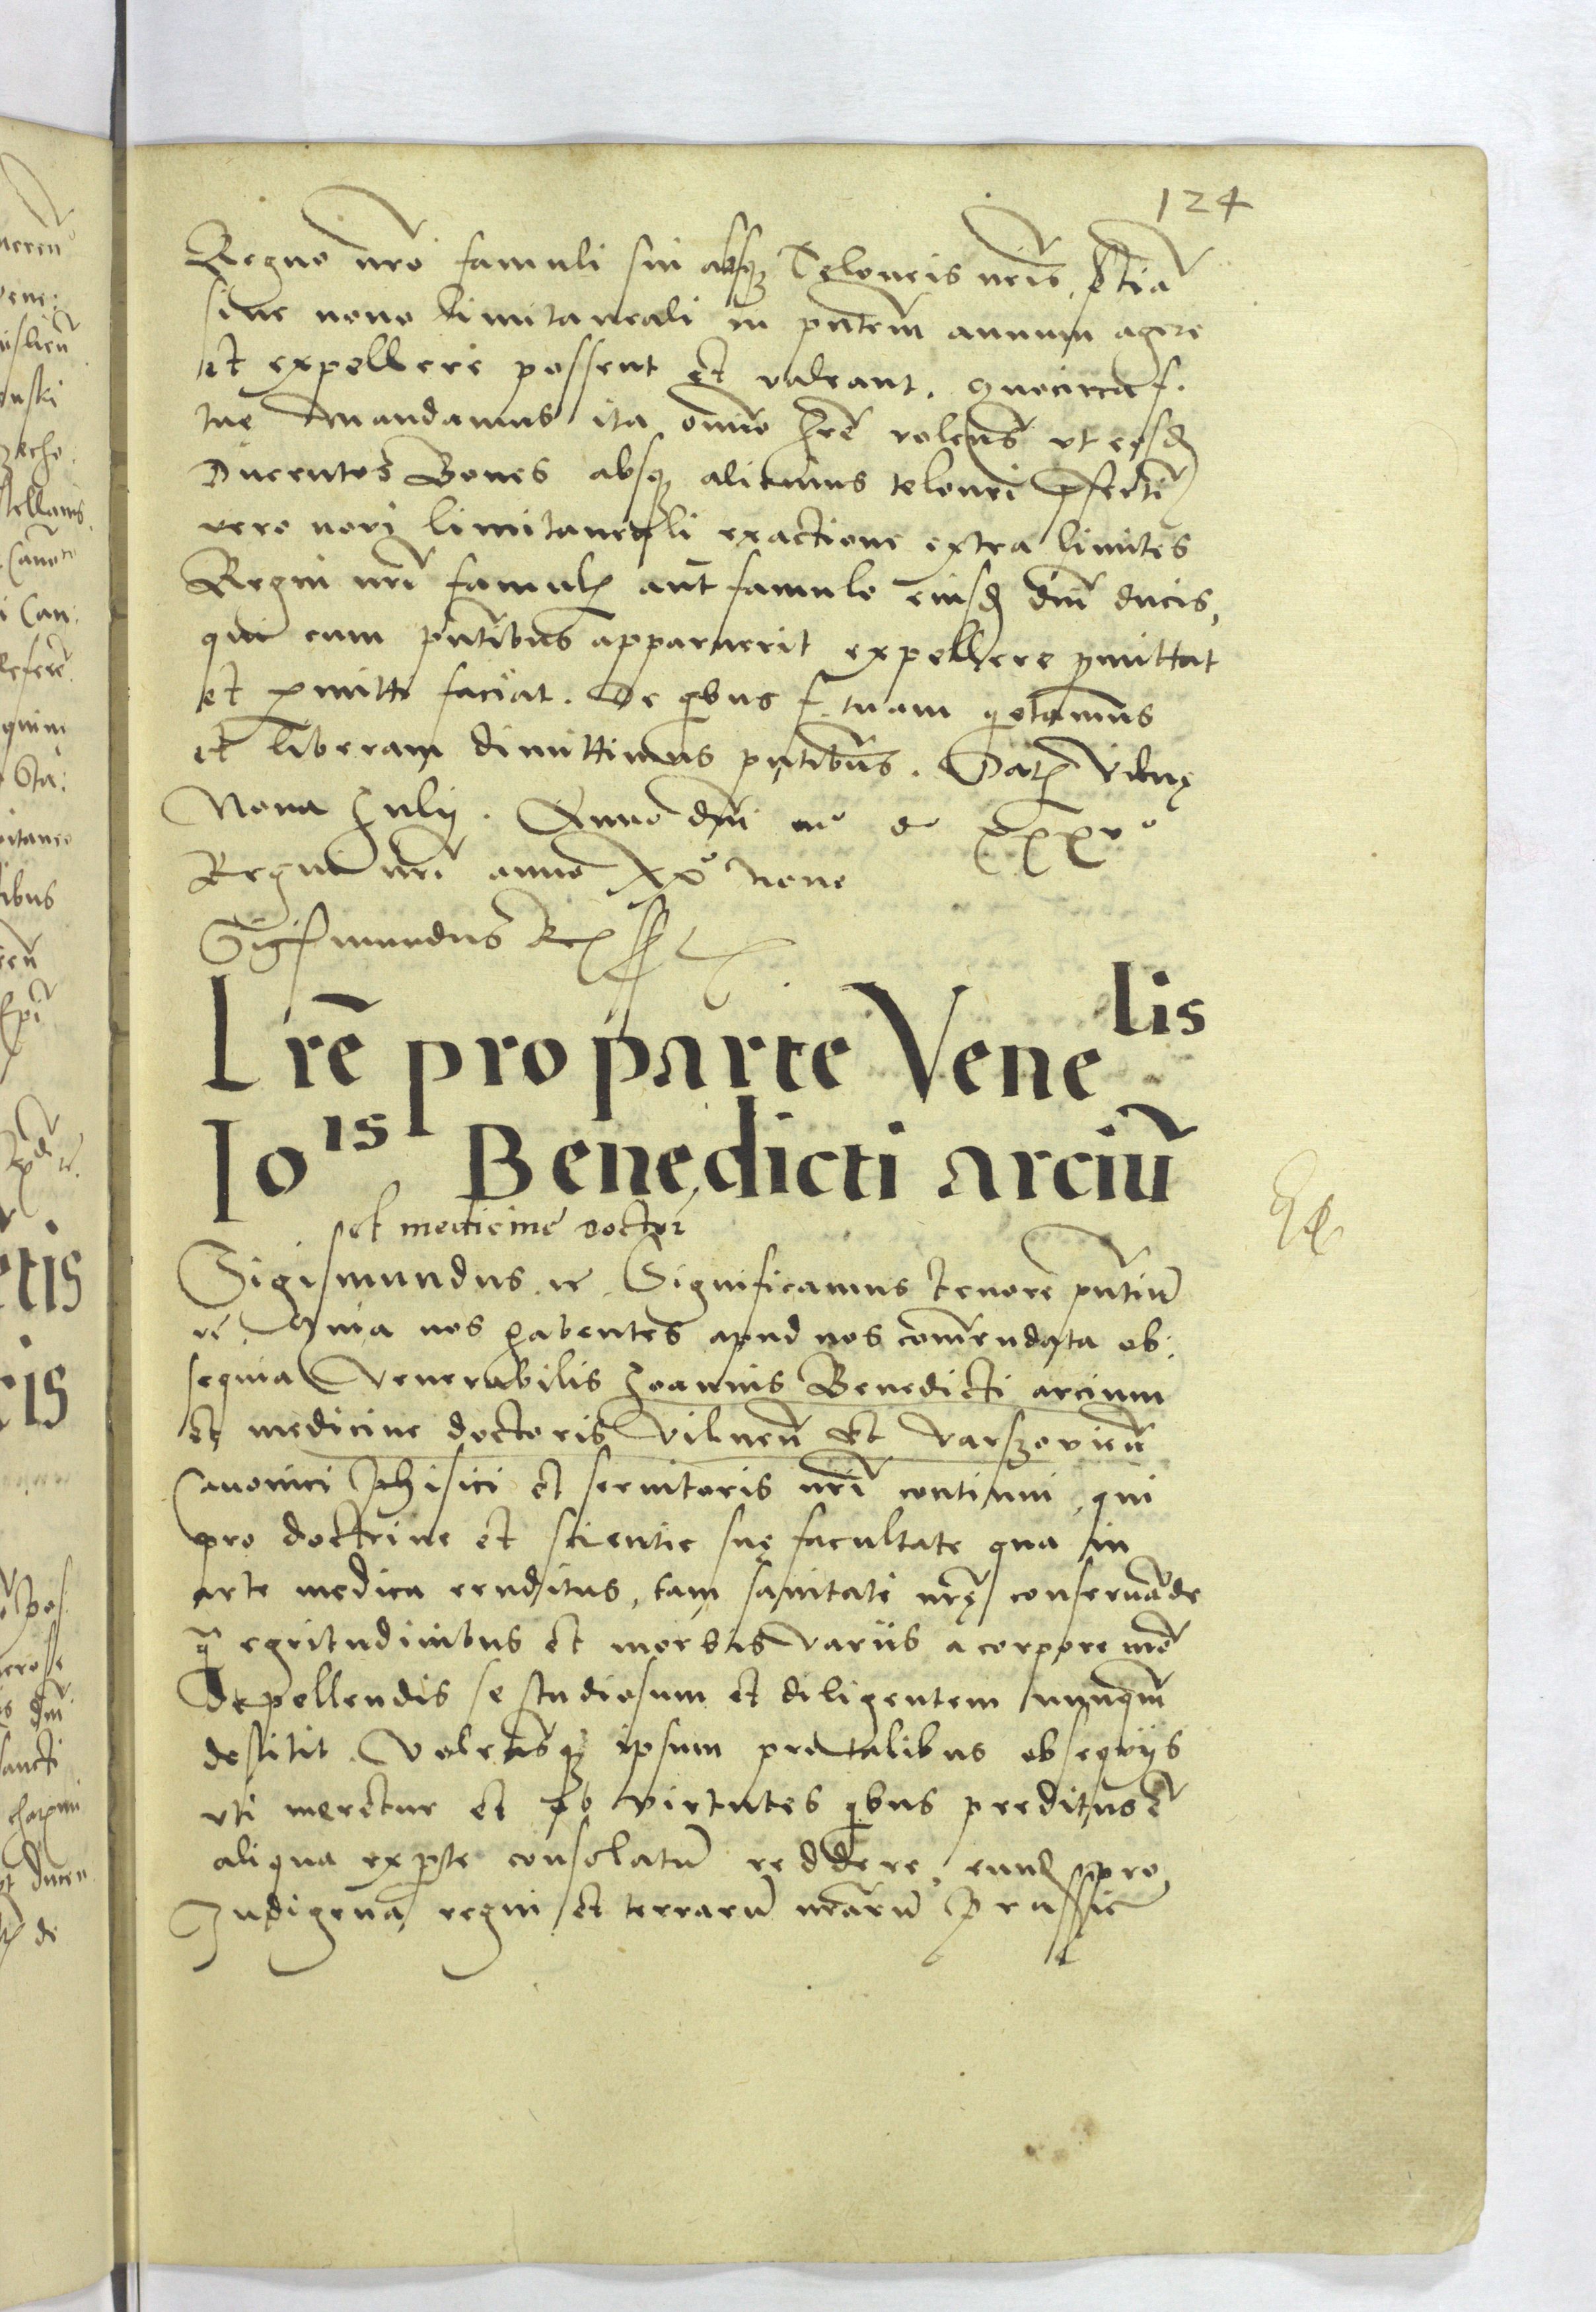 124
Regno nrō famuli sui absq Teloneis nrīs, etiā
sine nono limitaneali in pntem̄ annum agere
et expellere possent et valeant. Quocirca f.
tue Mandamus ita omīno hrē volens̄ vt eosd
Ducentos Boues absq alicuius telonei
vero novi limitaneali exactione extra limites
Regni nrī famulo aut famulo eiusd dnī ducis,
qui cum pntibus apparuerit expellere pmittat
et pmitti faciat. De qbus f. tuam qetamus
et liberam dimittimus pntibus. Dat Vilnę
Nona Julij. Anno dnī mo do xxxvo
Regni nrī anno xxo Nono
Sigismundus Rex sst
Lrē pro parte Venelis
Jois Benedicti arciū
et medicine doctor
Sigismundus, rc. Significamus tenore pntiū
rc. Quia nos habentes apud nos com̄endata ob:
sequia Venerabilis Joannis Benedicti arcium
et medicine doctoris Vilnen̄ et Varszovien̄
Canonici phisici et seruitoris nrī continui, qui
pro doctrine et scientie suę facultate qua in
arte medica eruditus, tam sanitati nrę conseruāde
q̄ egritudinibus et morbis variis a corpore nrō
depellendis se studiosum et diligentem nunqm̄
destitit. Volentesq ipsum pro talibus obsequijs
vti meretur et ob virtutes qbus preditus ē
aliqua ex pte consolatū reddere, eund pro
Indigena regni et terrarū nrārū Prussie